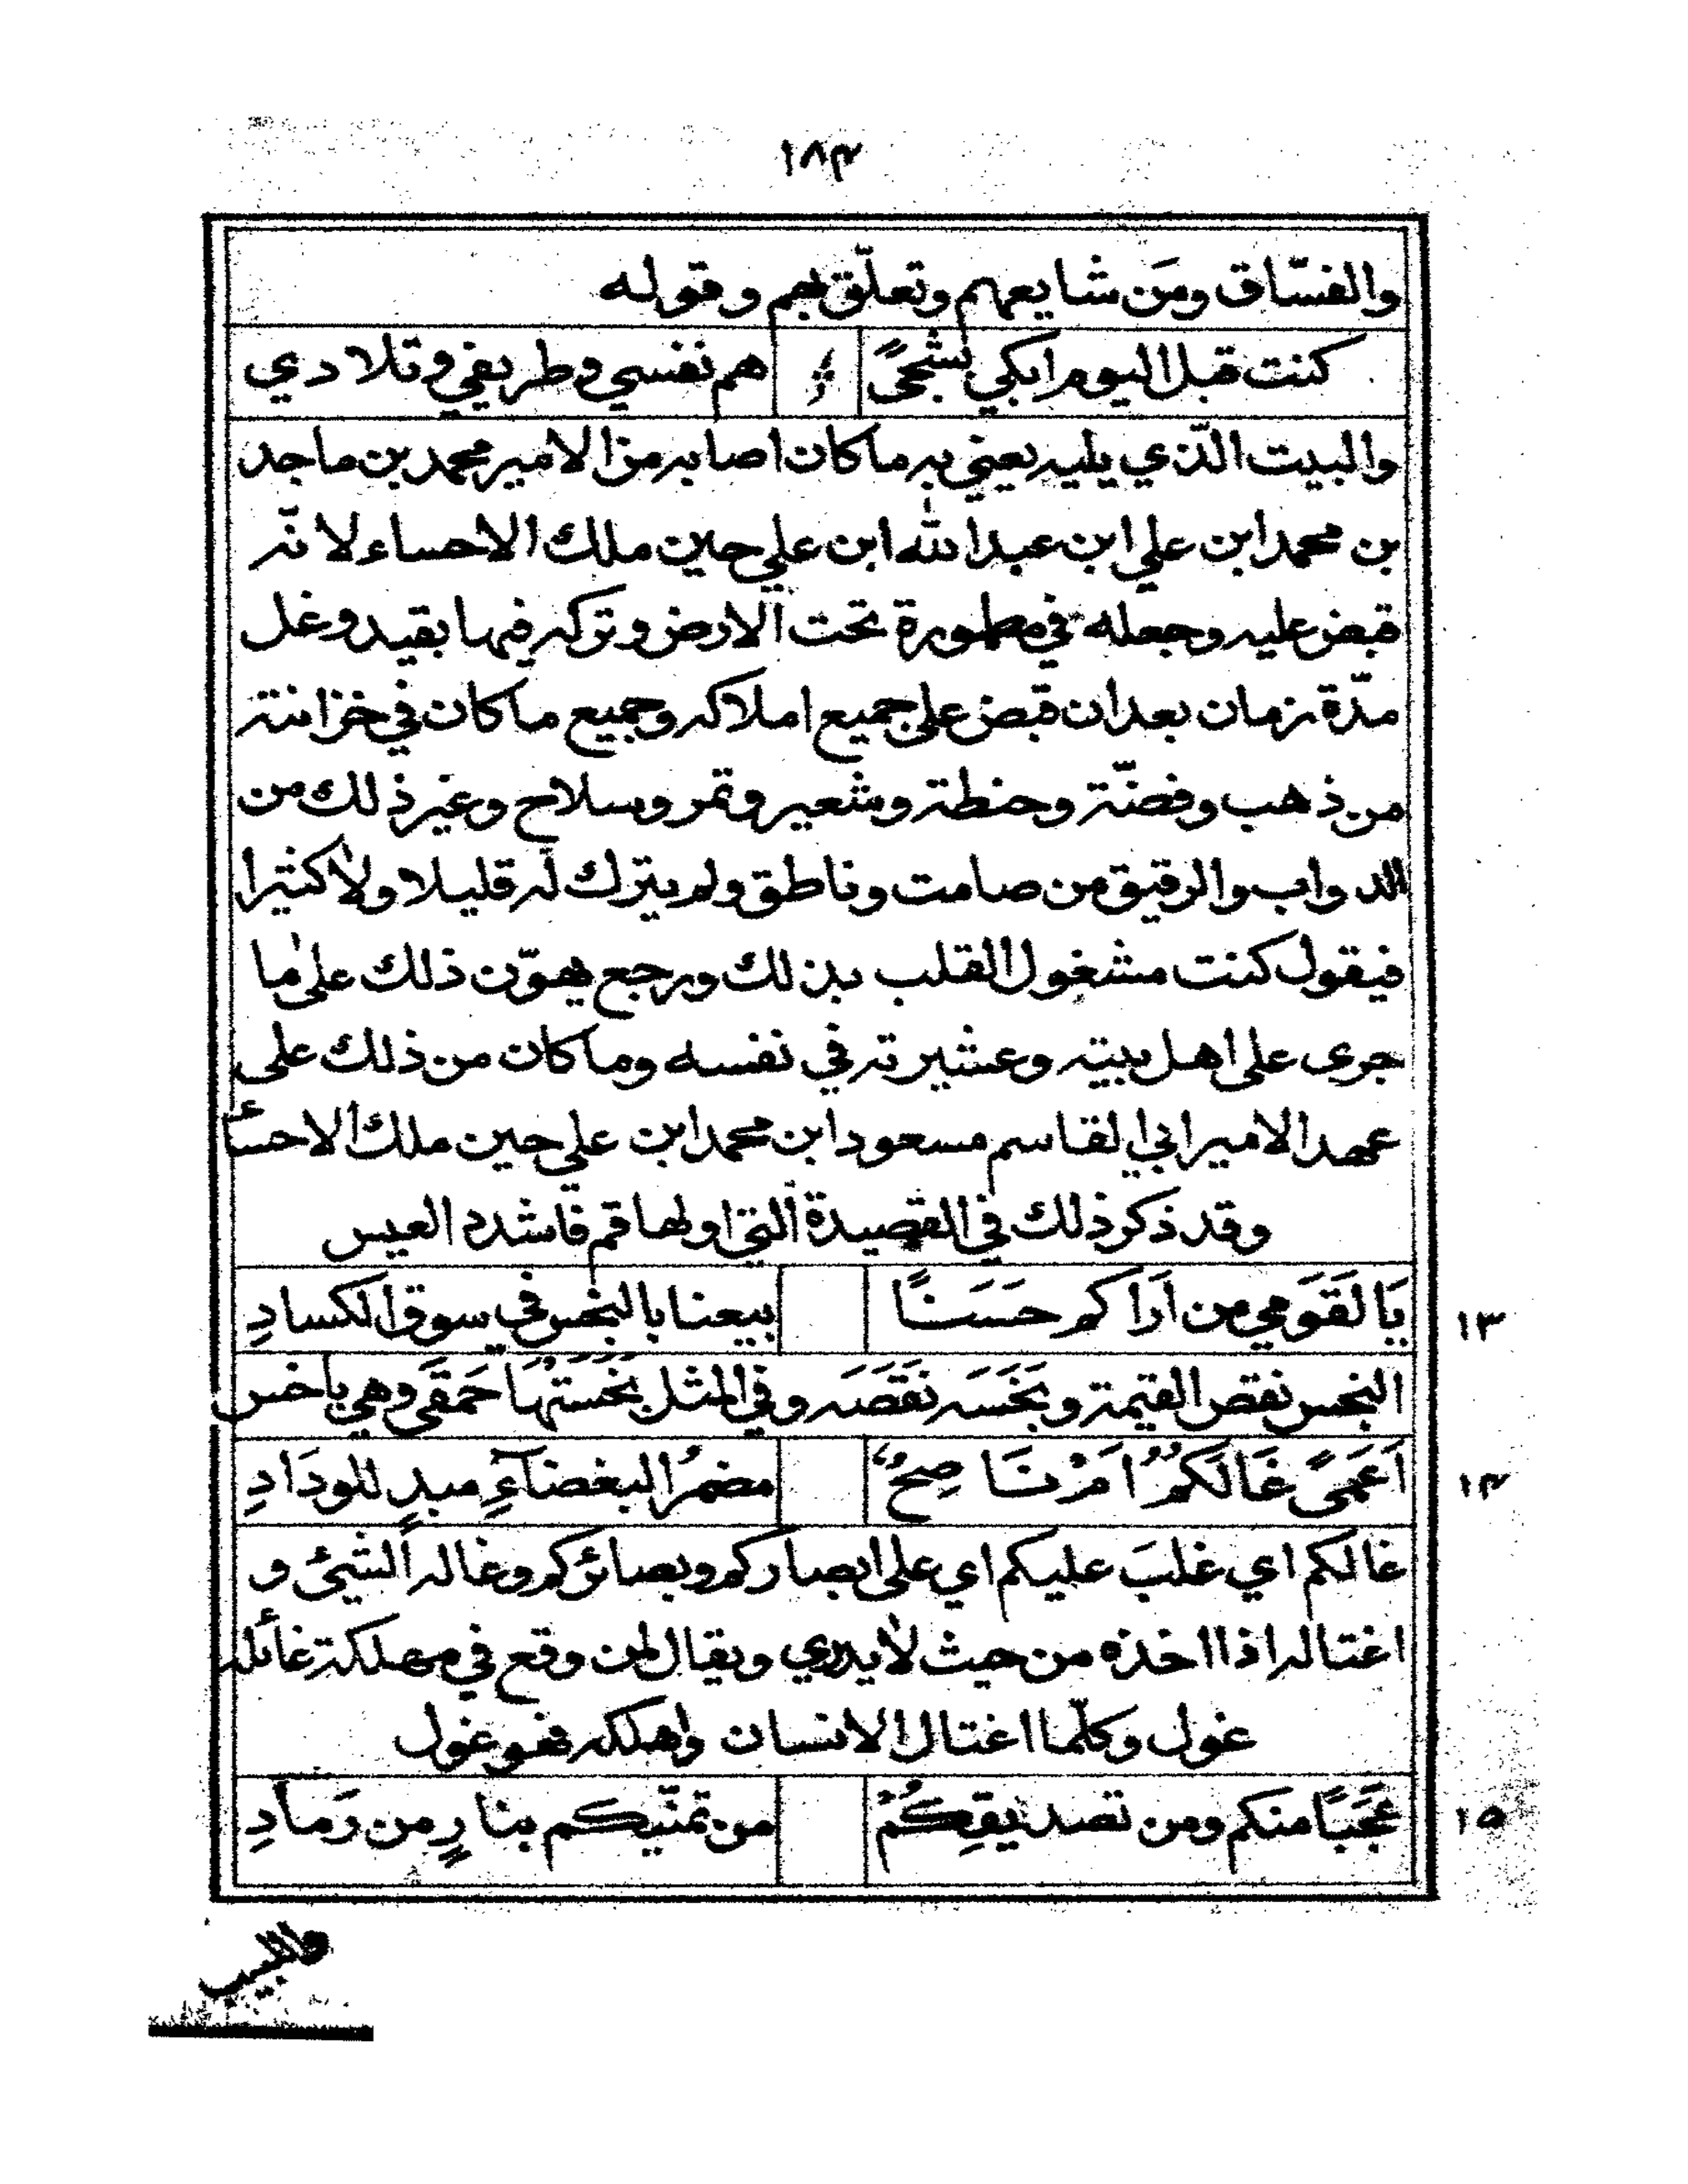 ١٨٤
والفسّاق ومَن شايعهم وتعلّق بهم وقوله
كنت قبل اليوم ابكي بشجًى هم نفسي وطريفي وتلادي
والبيت الذّي يليه يعني به ما كان اصابه من الامير محمد بن ماجد
بن محمد ابن علي ابن عبد الله ابن علي حين ملك الاحساء لانّه
قبض عليه وجعله في مطمورة تحت الارض وتركه فيها بقيد وغل
مدّة زمان بعد ان قبض على جميع املاكه وجميع ما كان في خزانته
من ذهب وفضّة وحنطة وشعير وتمر وسلاح وغير ذلك من
الدواب والرقيق من صامت وناطق ولم يترك له قليلا ولا كثيرا
فيقول كنت مشغول القلب بذلك ورجع يهوّن ذلك على ما
جرى على اهل بيته وعشيرته في نفسه وما كان من ذلك على
عهد الامير ابي القاسم مسعود ابن محمد ابن علي حين ملك الاحسأ
وقد ذكر ذلك في القصيدة التي اولها قم فاشدد العيس
١٣ يَا لَقَومي من اَرَاكم حَسَنًا بيعنا بالبخس في سوق الكسادِ
البخس نقص القيمة وبَخَسَه نَقَصَه وفي المثل بَخَسَتْهَا حَمقَى وهي باخس
١٤ اَعَمىً غَالَكُمُ اَمْ نَاصِحٌ مضمرُ البغضآءِ مبدٍ للودَادِ
غالكم اي غلبَ عليكم اي على ابصاركم وبصائركم وغاله الشيئ و
اغتاله اذا اخذه من حيث لا يدري ويقال لمن وقع في مهلكة غائله
غول وكلّما اغتال الانسان واهلكه فهو غول
١٥ عَجَبًا منكم ومن تصديقِكُمْ من تمنّيكم بنارٍ من رَمادِ
واللبيب